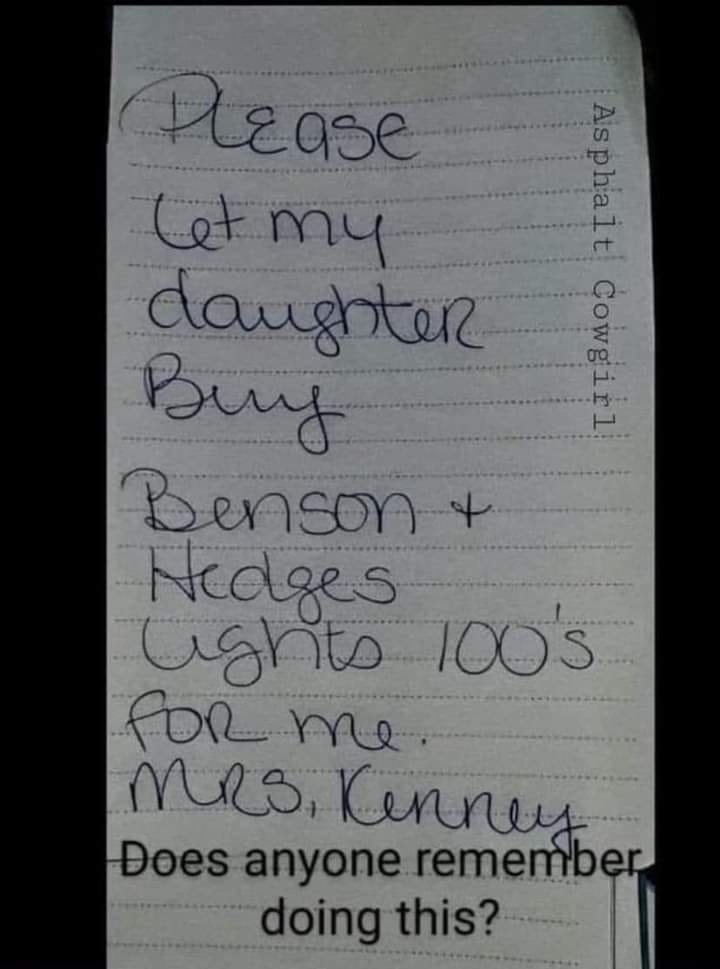 Please
Let my
daughter
Buy
Benson +
Hedges
Lights 100's
for me.
Mrs, Kenney
Does anyone remember
doing this?
Asphalt Cowgirl